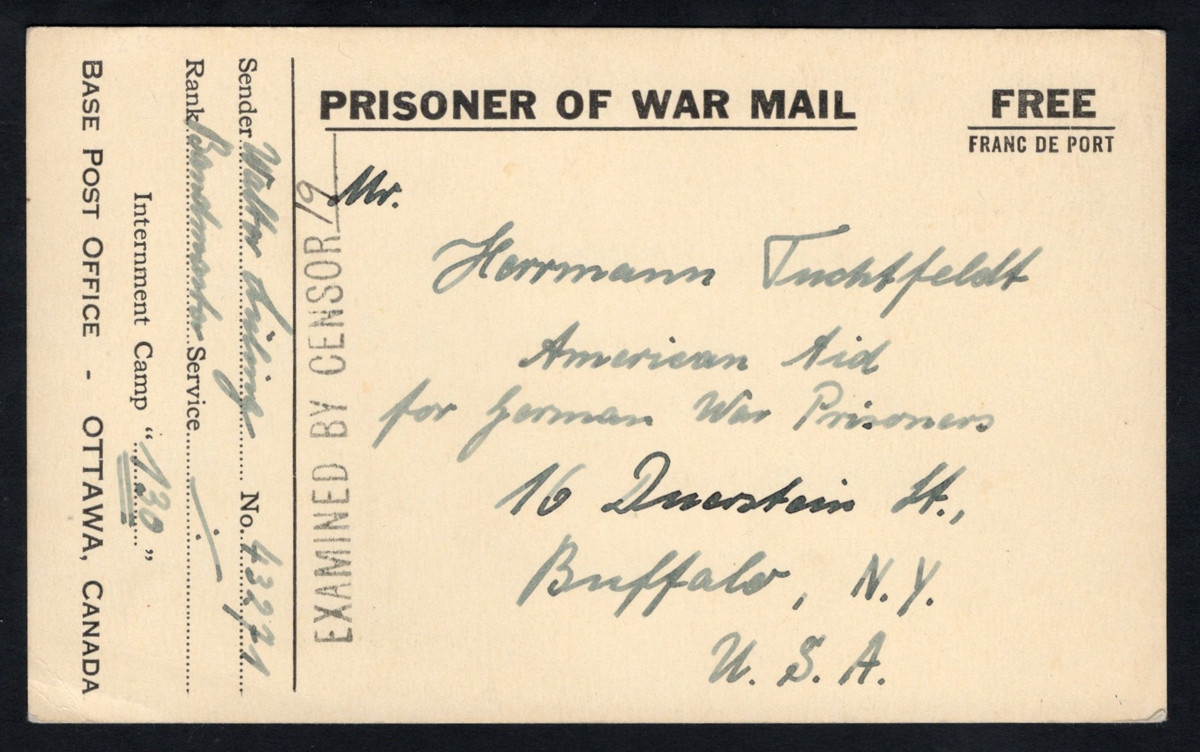 PRISONER OF WAR MAIL
FREE
FRANC DE PORT
Mr.
Herrmann Tuchtfeldt
American Aid
for German War Prisoners
16 Duerstein St.,
Buffalo, N.Y.
U.S.A.
EXAMINED BY CENSOR
Sender Walter No. 43271
Rank Bandmaster Service
Internment Camp "130"
BASE POST OFFICE - OTTAWA, CANADA